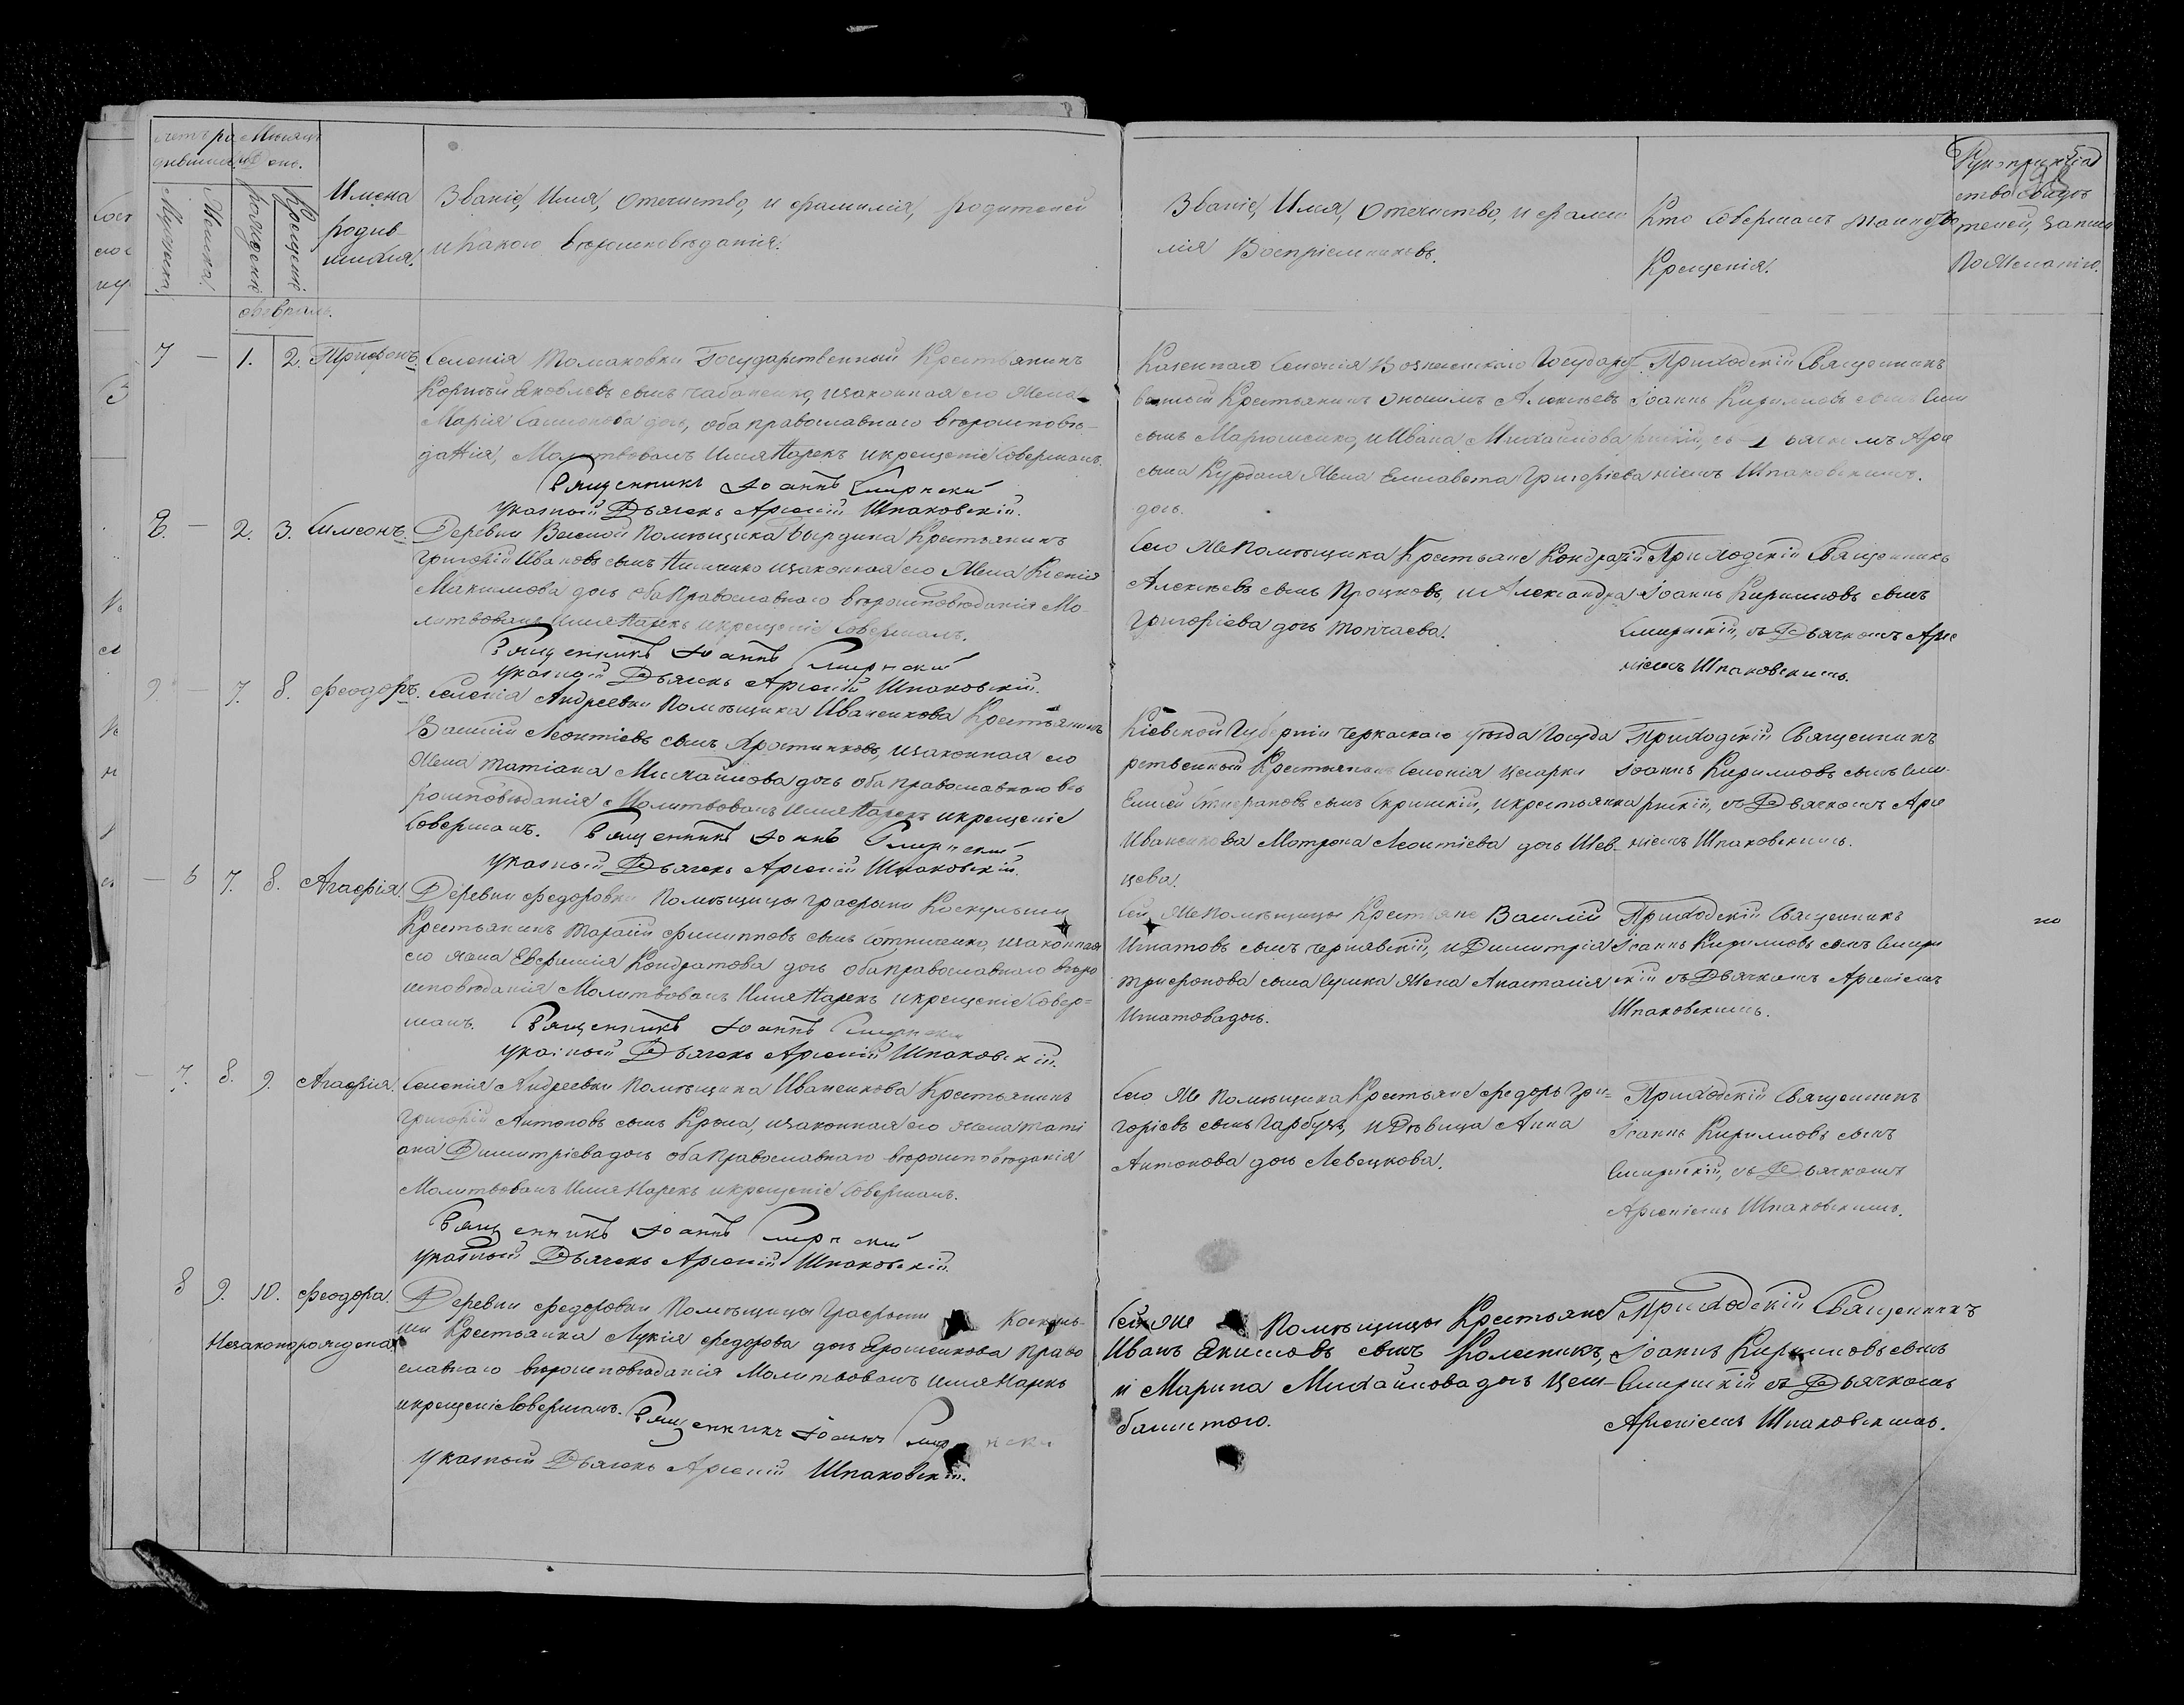 Имена
родив
шихся.
Званіе, Имя, Отечество, и фамилія, родителей
и какого вѣроисповѣданія.
Званіе, Имя, Отечество, и фами
лія Воспріемниковъ.
Кто совершалъ таинство
Крещенія.
телей, записи
По Желанію.
февраль.
7 — 1. 2. Трифонъ.
Селенія Томаковки Государственный Крестьянинъ
Корнѣй Яковлевъ сынъ Чабаненко, изаконная его Жена
Марія Самсонова дочь, оба православнаго вѣроисповѣ-
данія, Молитвовалъ Имя Нарекъ икрещеніе Совершалъ.
Священникъ Іоаннъ Смирнскій
указный Дьячекъ Арсеній Шпаковскій.
Казеннаго Селенія Вознесенскаго Государст
венный Крестьянинъ Онисимъ Алексѣевъ
сынъ Мартыненко, и Ивана Михайлова
сына Курбаля Жена Елисавета Григорѣева
дочь.
Приходскій Священникъ
Іоаннъ Кириловъ сынъ Сми
рнскій, съ Дьячкомъ Арсе
ніемъ Шпаковскимъ.
8. — 2. 3. Симеонъ.
Деревни Веселой Помѣщика Бырдина Крестьянинъ
Григорій Ивановъ сынъ изаконная его Жена Ксенія
Максимова дочь оба Православнаго вѣроисповѣданія Мо-
литвовалъ Имя Нарекъ икрещеніе Совершалъ.
Священникъ Іоаннъ Смирнскій
указный Дьячекъ Арсеній Шпаковскій.
Сего Же Помѣщика Крестьяне Кондратій
Алексѣевъ сынъ Процковъ, и Александра
Григорѣева дочь Топчаева.
Приходскій Священникъ
Іоаннъ Кириловъ сынъ
Смирнскій, съ Дьячкомъ Арсе
ніемъ Шпаковскимъ.
9. — 7. 8. Феодоръ.
Селенія Андреевки Помѣщика Иваненкова Крестьянинъ
Василій Леонтіевъ сынъ изаконная его
Жена Татіана Михайлова дочь оба православнаго вѣ
роисповѣданія Молитвовалъ Имя Нарекъ икрещеніе
Совершалъ. Священникъ Іоаннъ Смирнскій
указный Дьячекъ Арсеній Шпаковскій.
Кіевской Губерніи Черкаскаго уѣзда Госуда
рственный Крестьянинъ Селенія
Елисей Стефановъ сынъ Скринскій, икрестьянка
Иваненкова Матрона Леонтіева дочь Шев-
цева.
Приходскій Священникъ
Іоаннъ Кириловъ сынъ Сми-
рнскій, съ Дьячкомъ Арсе
ніемъ Шпаковскимъ.
— 6 7. 8. Агафія.
Деревни Федоровки Помѣщицы Графыни
Крестьянинъ Тарасій Филипповъ сынъ Сотниченко, изаконная
его жена Евфимія Кондратова дочь обаправославнаго вѣро
исповѣданія Молитвовалъ Имя Нарекъ икрещеніе Совер=
шалъ. Священникъ Іоаннъ Смирнскій
указный Дьячекъ Арсеній Шпаковскій.
Сей Же Помѣщицы Крестьяне Василій
Игнатовъ сынъ Чернявскій, и Димитрія
Трифонова сына Сушка Жена Анастасія
Игнатова дочь.
Приходскій Священникъ
Іоаннъ Кириловъ сынъ Смирн
скій съ Дьячкомъ Арсеніемъ
Шпаковскимъ.
— 7. 8. 9. Агафія.
Селенія Андреевки Помѣщика Иваненкова Крестьянинъ
Григорій Антоновъ сынъ Крыса, изаконная его жена Тати
ана Димитріева дочь оба Православнаго вѣроисповѣданія
Молитвовалъ Имя Нарекъ икрещеніе Совершалъ.
Священникъ Іоаннъ Смирнскій
указный Дьячекъ Арсеній Шпаковскій.
Сего Же Помѣщика Крестьяне Федоръ Гри=
горіевъ сынъ Гарбузъ, и Дѣвица Анна
Антонова дочь Левецкова.
Приходскій Священникъ
Іоаннъ Кириловъ сынъ
Смирнскій, съ Дьячкомъ
Арсеніемъ Шпаковскимъ.
8 9. 10. Феодора.
Незаконорожденая
Деревни Федоровки Помѣщицы Графыни
Крестьянка Лукія Федорова дочь Ярошенкова право
славнаго вѣроисповѣданія Молитвовалъ Имя Нарекъ
икрещеніе Совершалъ. Священникъ Іоаннъ Смирнскій
указный Дьячекъ Арсеній Шпаковскій.
Сей же Помѣщицы Крестьяне
Иванъ Якимовъ сынъ Колесникъ,
и Марина Михайлова дочь Цым-
балистого.
Приходскій Священникъ
Іоаннъ Кириловъ сынъ
Смирнскій съ Дьячкомъ
Арсеніемъ Шпаковскимъ.